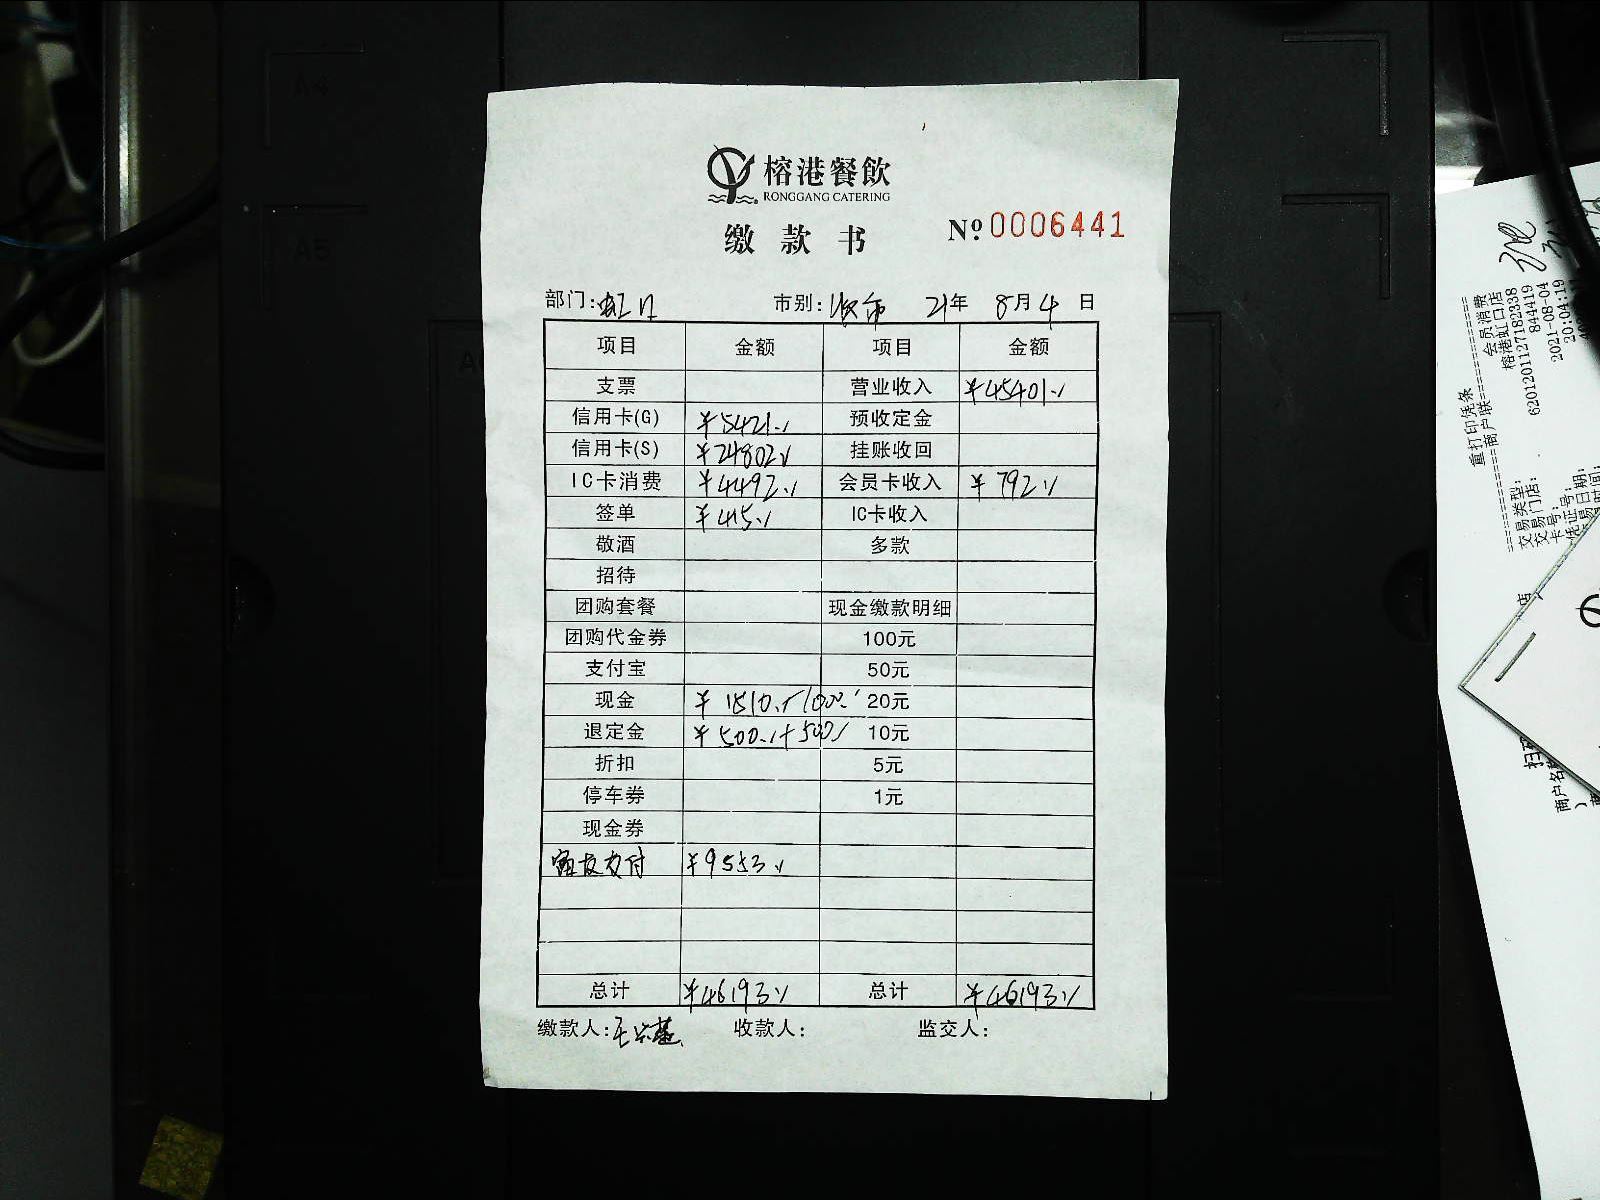 榕港餐飲
RONGGANG CATERING
缴款书 №0006441
部门:虹口 市别:夜市 21年 8月4日
项目 金额 项目 金额
支票 营业收入 ¥45401.-
信用卡(G) ¥5421.- 预收定金
信用卡(S) ¥24802.- 挂账收回
IC卡消费 ¥4492.- 会员卡收入 ¥792.-
签单 ¥415.- IC卡收入
敬酒 多款
招待
团购套餐 现金缴款明细
团购代金券 100元
支付宝 50元
现金 20元
退定金 ¥500.-+500.- 10元
折扣 5元
停车券 1元
现金券
支付 ¥9553.-
总计 ¥46193.- 总计 ¥46193.-
缴款人: 收款人: 监交人:
重打印凭条
商户联
交易类型: 会员消费
交易门店: 榕港虹口店
卡号: 6201201127182338
凭证号: 844419
交易日期: 2021-08-04
20:04:19
店
商户名